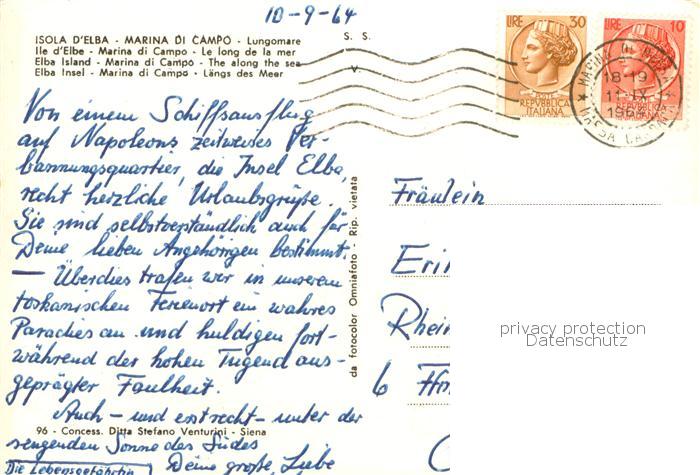 10-9-64
ISOLA D'ELBA - MARINA DI CAMPO - Lungomare
Ile d'Elbe - Marina di Campo - Le long de la mer
Elba Island - Marina di Campo - The along the sea
Elba Insel - Marina di Campo - Längs des Meer
S. S.
V.
LIRE 30
REPVBBLICA
ITALIANA
LIRE 10
REPVBBLICA
ITALIANA
18-19
11-IX
196
Von einem Schiffsausflug
auf Napoleons zeitweises Ver-
bannungsquartier, die Insel Elba,
recht herzliche Urlaubsgrüße.
Sie sind selbstverständlich auch für
Deine lieben Angehörigen bestimmt.
— Überdies trafen wir in unserem
toskanischen Ferienort ein wahres
Paradies an und huldigen fort-
während der hohen Tugend aus-
geprägter Faulheit.
Auch - und erst recht - unter der
96 - Concess. Ditta Stefano Venturini - Siena
sengenden Sonne des Südes
Die Lebensgefährtin Deine große Liebe
da fotocolor Omniafoto - Rip. vietata
Fräulein
Eri
Rhein
6
privacy protection
Datenschutz